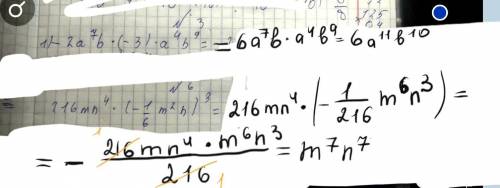 № 3
1) -2a⁷b · (-3) · a⁴b⁹ = = 6a⁷b · a⁴b⁹ = 6a¹¹b¹⁰
№ 6
= 216mn⁴ · (-1/6 m²n)³ = 216mn⁴ · (-1/216 m⁶n³) =
= - 216mn⁴ · m⁶n³ / 216 1 = m⁷n⁷